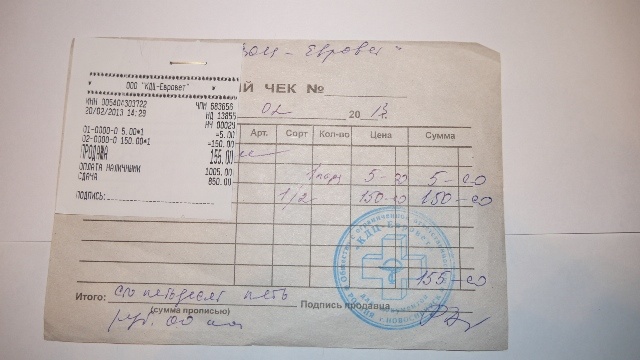 - Евровет"
ООО "КДЦ-Евровет"
ЧЕК №
ИНН 00540*303722 ЧПМ 683656
20/02/2013 14:29 КД 13855
НЧ 00029
01-0000-0 5.00*1 =5.00
02-0000-0 150.00*1 =150.00
ПРОДАЖА 155.00
ОПЛАТА НАЛИЧНЫМИ 1005.00
СДАЧА 850.00
ПОДПИСЬ:
02 2013
Арт. Сорт Кол-во Цена Сумма
5-00 5-00
1/2 150-00 150-00
КДЦ-Евровет
155-00
Итого: сто пятьдесят пять
Подпись продавца
(сумма прописью)
руб. 00 коп